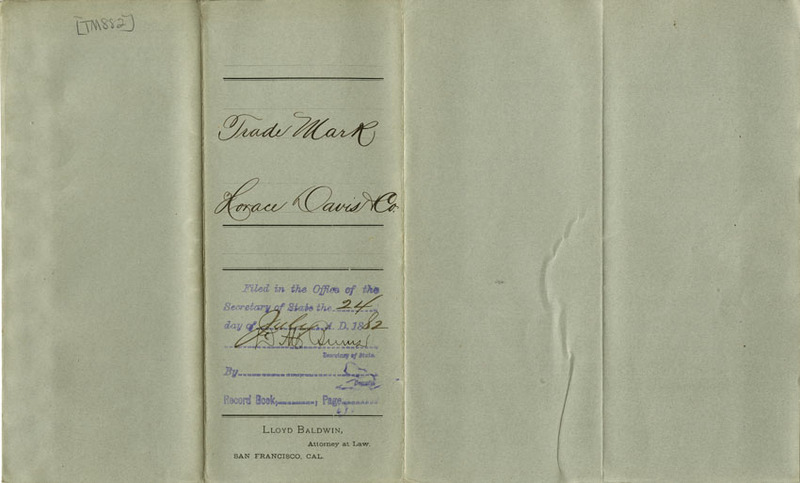 [TM882]
Trade Mark
Horace Davis & Co.
Filed in the Office of the
Secretary of State the 24
day of July A. D. 1882
Secretary of State.
By
Deputy
Record Book, ; Page
LLOYD BALDWIN,
Attorney at Law.
SAN FRANCISCO, CAL.